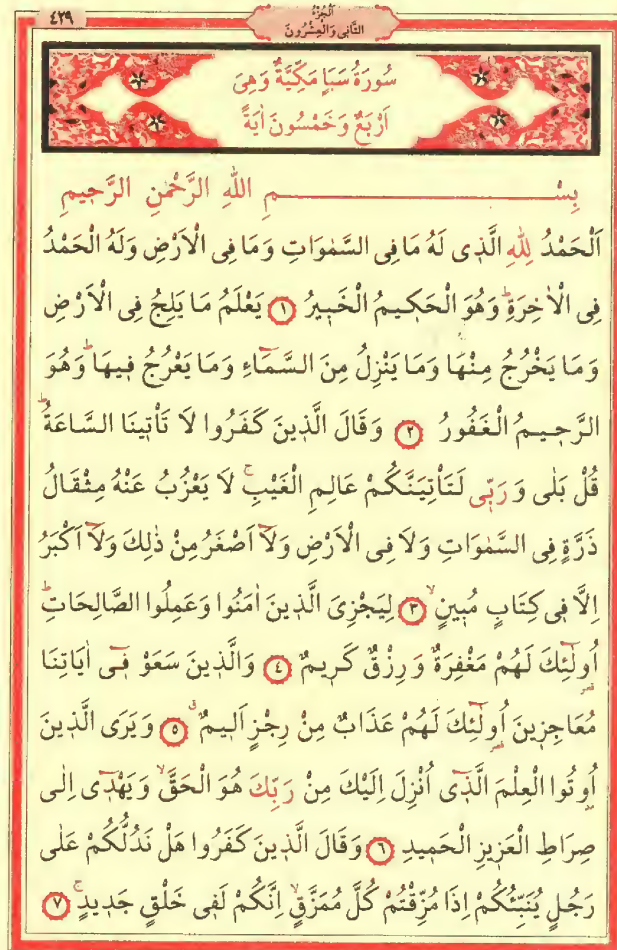 ٤٢٩
اَلْجُزْءُ
الثَّانِى وَالْعِشْرُونَ
سُورَةُ سَبَإٍ مَكِّيَّةٌ وَهِىَ
اَرْبَعٌ وَخَمْسُونَ اٰيَةً
بِسْــــــــــــــــــــمِ اللهِ الرَّحْمٰنِ الرَّحِيمِ
اَلْحَمْدُ لِلهِ الَّذِى لَهُ مَا فِى السَّمٰوَاتِ وَمَا فِى الْاَرْضِ وَلَهُ الْحَمْدُ
فِى الْاٰخِرَةِۜ وَهُوَ الْحَكِيمُ الْخَبِيرُ ١ يَعْلَمُ مَا يَلِجُ فِى الْاَرْضِ
وَمَا يَخْرُجُ مِنْهَا وَمَا يَنْزِلُ مِنَ السَّمَٓاءِ وَمَا يَعْرُجُ فِيهَاۜ وَهُوَ
الرَّحِيمُ الْغَفُورُ ٢ وَقَالَ الَّذِينَ كَفَرُوا لَا تَأْتِينَا السَّاعَةُۜ
قُلْ بَلٰى وَرَبِّى لَتَأْتِيَنَّكُمْ عَالِمِ الْغَيْبِۚ لَا يَعْزُبُ عَنْهُ مِثْقَالُ
ذَرَّةٍ فِى السَّمٰوَاتِ وَلَا فِى الْاَرْضِ وَلَٓا اَصْغَرُ مِنْ ذٰلِكَ وَلَٓا اَكْبَرُ
اِلَّا فِى كِتَابٍ مُبِينٍۙ ٣ لِيَجْزِىَ الَّذِينَ اٰمَنُوا وَعَمِلُوا الصَّالِحَاتِۜ
اُولٰٓئِكَ لَهُمْ مَغْفِرَةٌ وَرِزْقٌ كَرِيمٌ ٤ وَالَّذِينَ سَعَوْ فِٓى اٰيَاتِنَا
مُعَاجِزِينَ اُولٰٓئِكَ لَهُمْ عَذَابٌ مِنْ رِجْزٍ اَلِيمٌ ٥ وَيَرَى الَّذِينَ
اُوتُوا الْعِلْمَ الَّذِٓى اُنْزِلَ اِلَيْكَ مِنْ رَبِّكَ هُوَ الْحَقَّۙ وَيَهْدِٓى اِلٰى
صِرَاطِ الْعَزِيزِ الْحَمِيدِ ٦ وَقَالَ الَّذِينَ كَفَرُوا هَلْ نَدُلُّكُمْ عَلٰى
رَجُلٍ يُنَبِّئُكُمْ اِذَا مُزِّقْتُمْ كُلَّ مُمَزَّقٍۙ اِنَّكُمْ لَفِى خَلْقٍ جَدِيدٍۚ ٧